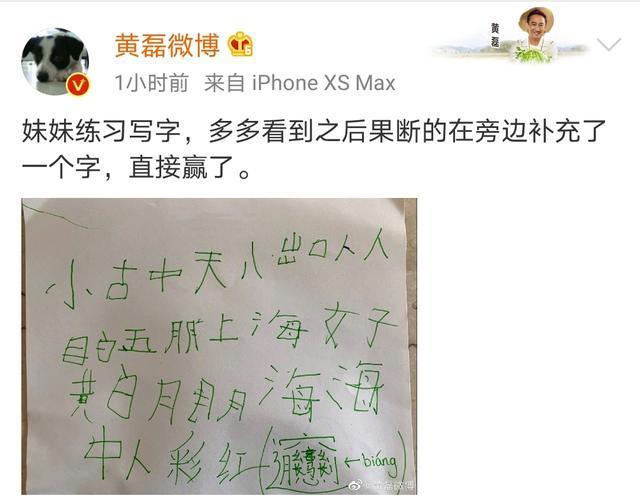 黄磊微博
黄磊
1小时前 来自 iPhone XS Max
妹妹练习写字，多多看到之后果断的在旁边补充了
一个字，直接赢了。
小古中天八出口人人
目白五朋上海女子
黄白月朋月海海
中人彩红(𰻞←biáng)
@黄磊微博